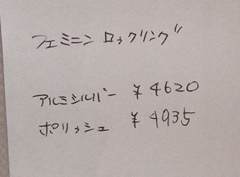 フェミニン ロックリング
アルミシルバー ¥4620
ポリッシュ ¥4935